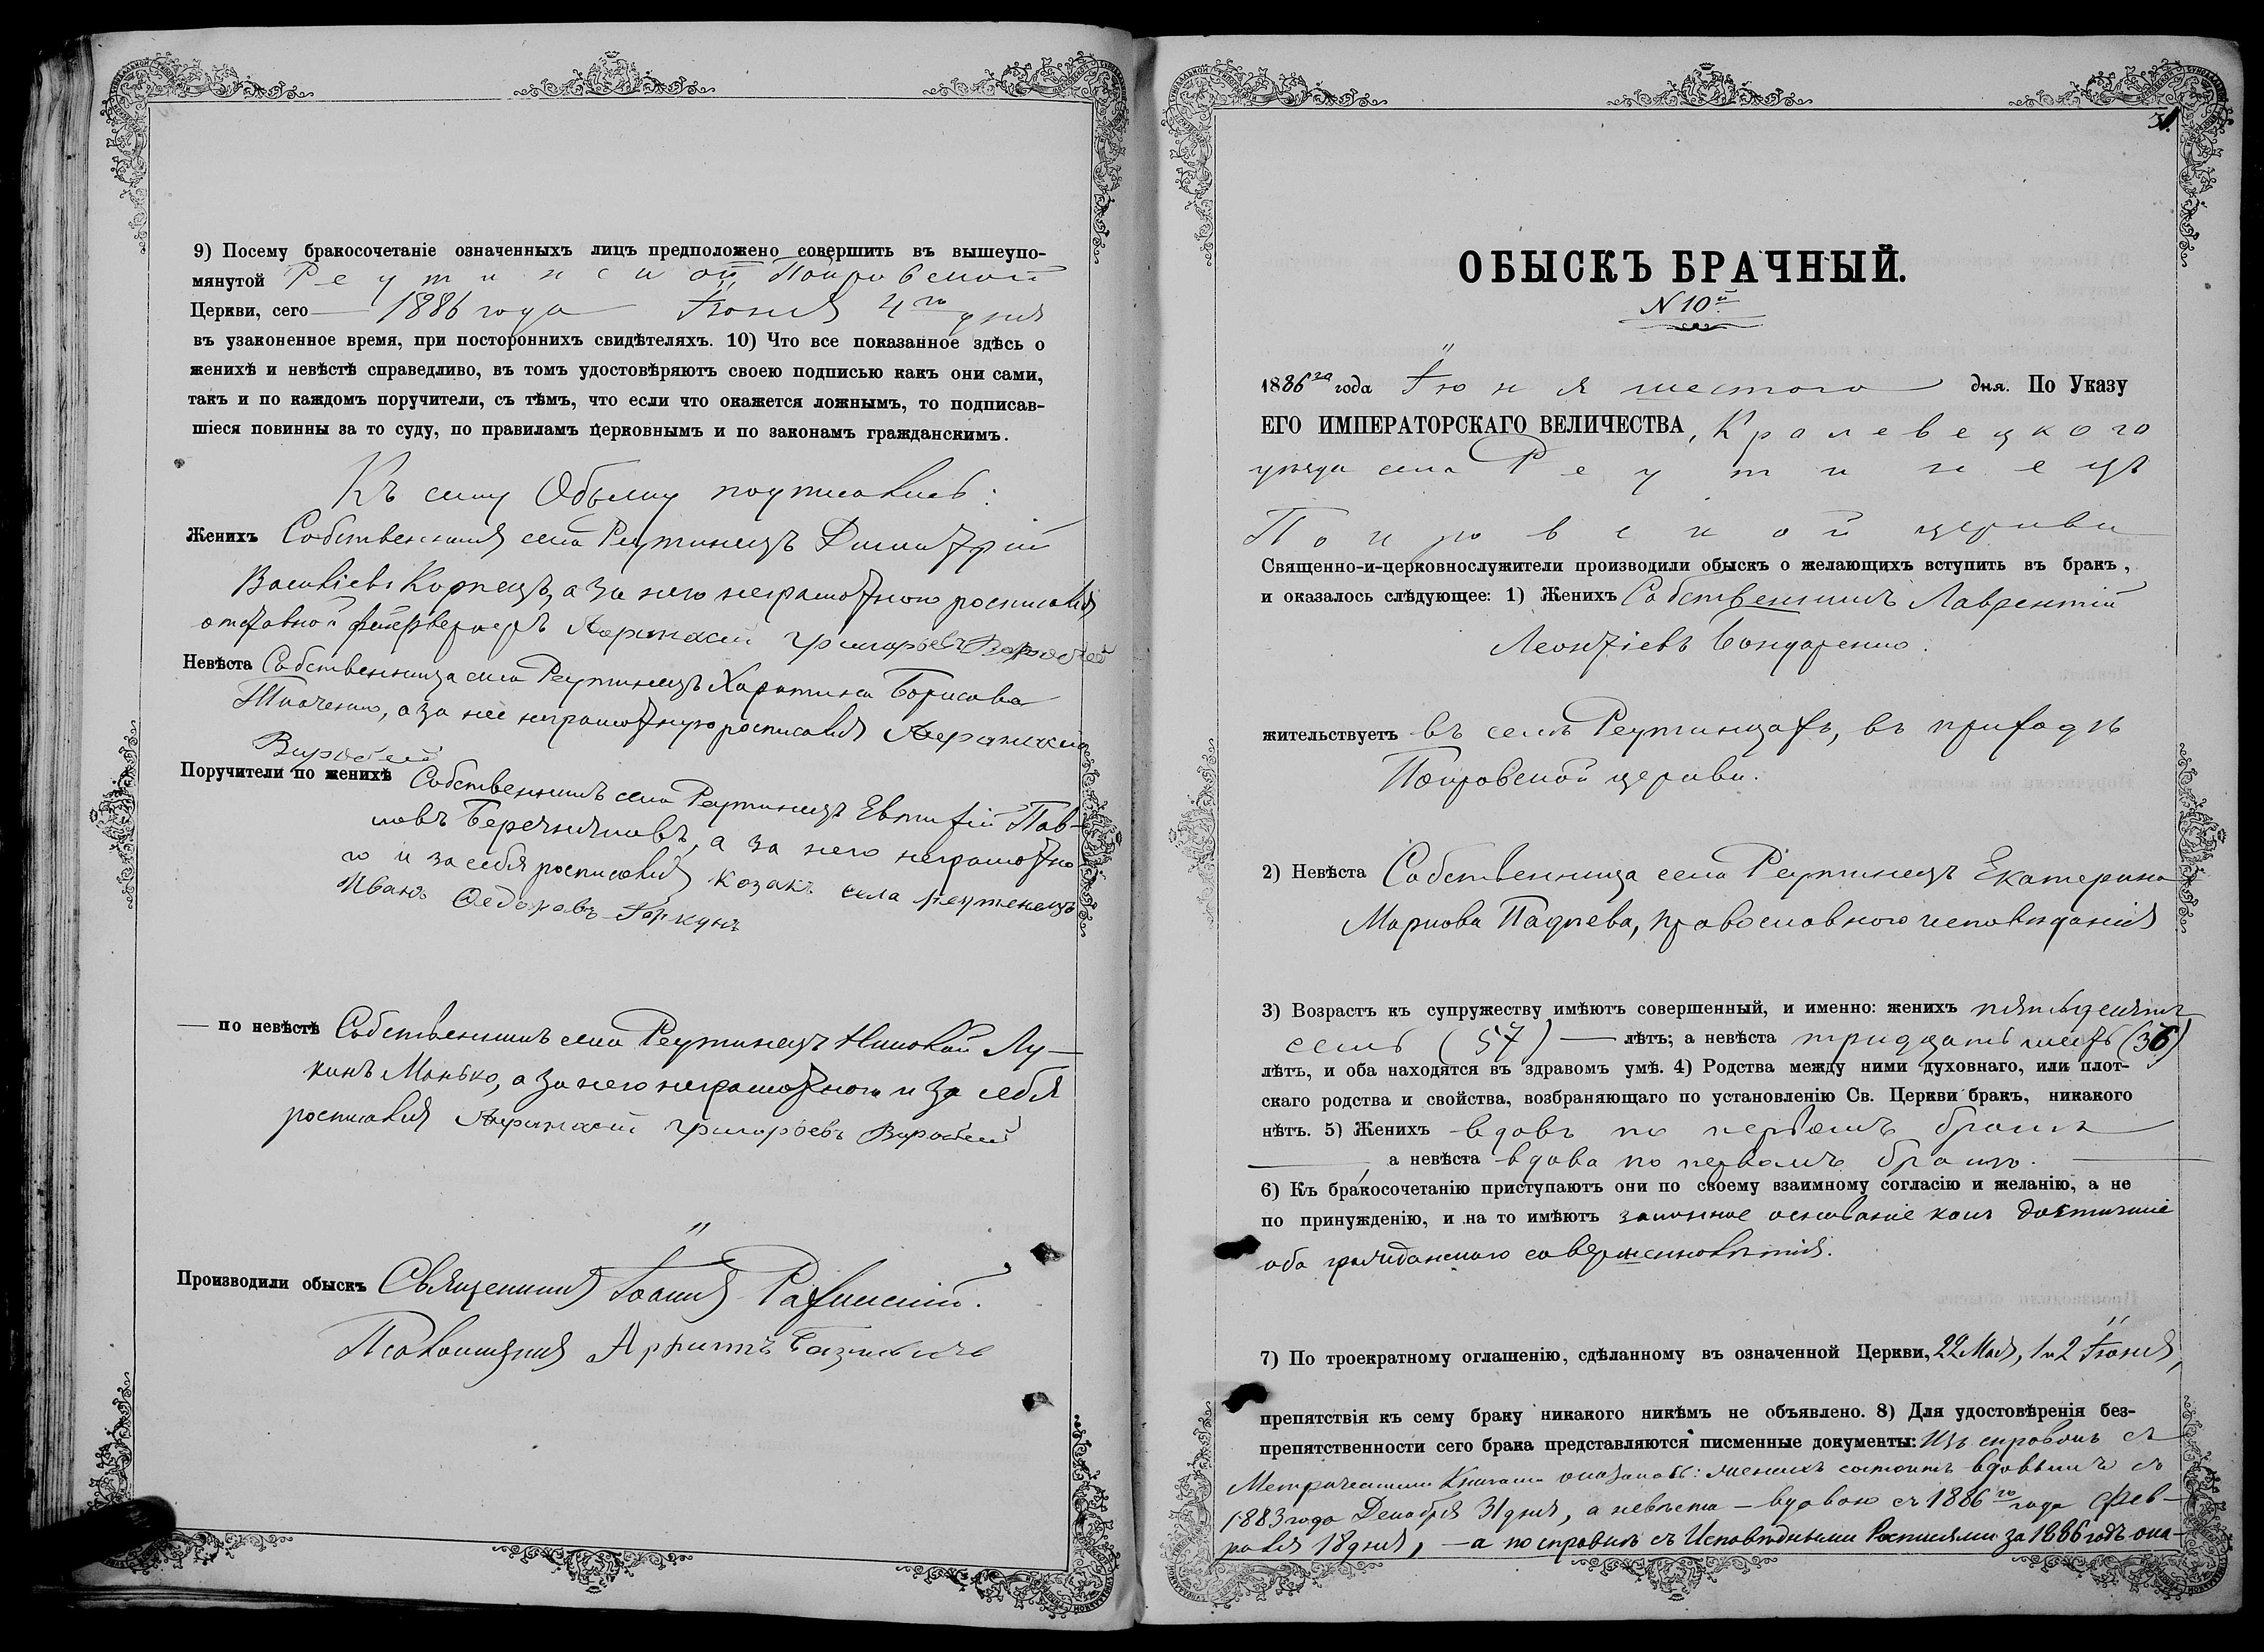 9) Посему бракосочетаніе означенныхъ лицъ предположено совершить въ вышеупо-
мянутой Реутинской Покровской
Церкви, сего 1886 года Іюня 4го дня
въ узаконенное время, при постороннихъ свидѣтеляхъ. 10) Что все показанное здѣсь о
женихѣ и невѣстѣ справедливо, въ томъ удостовѣряютъ своею подписью какъ они сами,
такъ и по каждомъ поручители, съ тѣмъ, что если что окажется ложнымъ, то подписав-
шіеся повинны за то суду, по правиламъ церковнымъ и по законамъ гражданскимъ.
Къ сему Обыску подписались:
Женихъ Собственникъ села Реутинецъ Димитрій
Васильевъ Корнецъ, а за него неграмотного росписался
отставной фейерверкеръ Григорьевъ
Невѣста Собственница села Реутинецъ Харитина Борисова
Ткаченко, а за нее неграмотную росписался
Поручители по женихѣ Собственникъ села Реутинецъ Евтихій Пав-
ловъ, а за него неграмотно-
го и за себя росписался козакъ села Реутенецъ
Иванъ Федоровъ
— по невѣстѣ Собственникъ села Реутинецъ Николай Лу-
кинъ Манько, а за него неграмотного и за себя
росписался Григорьевъ
Производили обыскъ Священникъ Іоаннъ
Псаломщикъ
31.
ОБЫСКЪ БРАЧНЫЙ.
N 10й
1886го года Іюня шестого дня. По Указу
ЕГО ИМПЕРАТОРСКАГО ВЕЛИЧЕСТВА, Кролевецкого
уѣзда села Реутинецъ
Покровской церкви
Священно-и-церковнослужители производили обыскъ о желающихъ вступить въ бракъ,
и оказалось слѣдующее: 1) Женихъ Собственникъ Лаврентій
Леонтіевъ Бондаренко.
жительствуетъ въ селѣ Реутинцахъ, въ приходѣ
Покровской церкви.
2) Невѣста Собственница села Реутинецъ Екатерина
Маркова Падчева, православного исповѣданія
3) Возрастъ къ супружеству имѣютъ совершенный, и именно: женихъ пятьдесятъ
семь (57) — лѣтъ; а невѣста тридцать шесть (36)
лѣтъ, и оба находятся въ здравомъ умѣ. 4) Родства между ними духовнаго, или плот-
скаго родства и свойства, возбраняющаго по установленію Св. Церкви бракъ, никакого
нѣтъ. 5) Женихъ вдовъ по первомъ бракѣ
, а невѣста вдова по первомъ бракѣ.
6) Къ бракосочетанію приступаютъ они по своему взаимному согласію и желанію, а не
по принужденію, и на то имѣютъ законное основаніе какъ достигшіе
оба гражданского совершеннолѣтія.
7) По троекратному оглашенію, сдѣланному въ означенной Церкви, 22 Мая, 1 и 2 Іюня,
препятствія къ сему браку никакого никѣмъ не объявлено. 8) Для удостовѣренія без-
препятственности сего брака представляются писменные документы: Изъ справокъ съ
Метрическими Книгами оказалось: женихъ состоитъ вдовымъ съ
1883 года Декабря 31 дня, а невѣста — вдовою съ 1886го года Фев-
раля 18 дня, — а по справкѣ съ Исповѣдными Росписями за 1886 годъ ока-